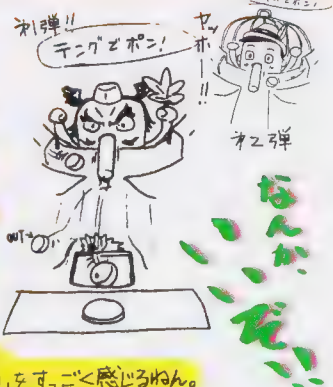 第1弾!!
テングでポン!
ヤッホー!!
第2弾
OUT→
なんか、
をすっごく感じるねん。